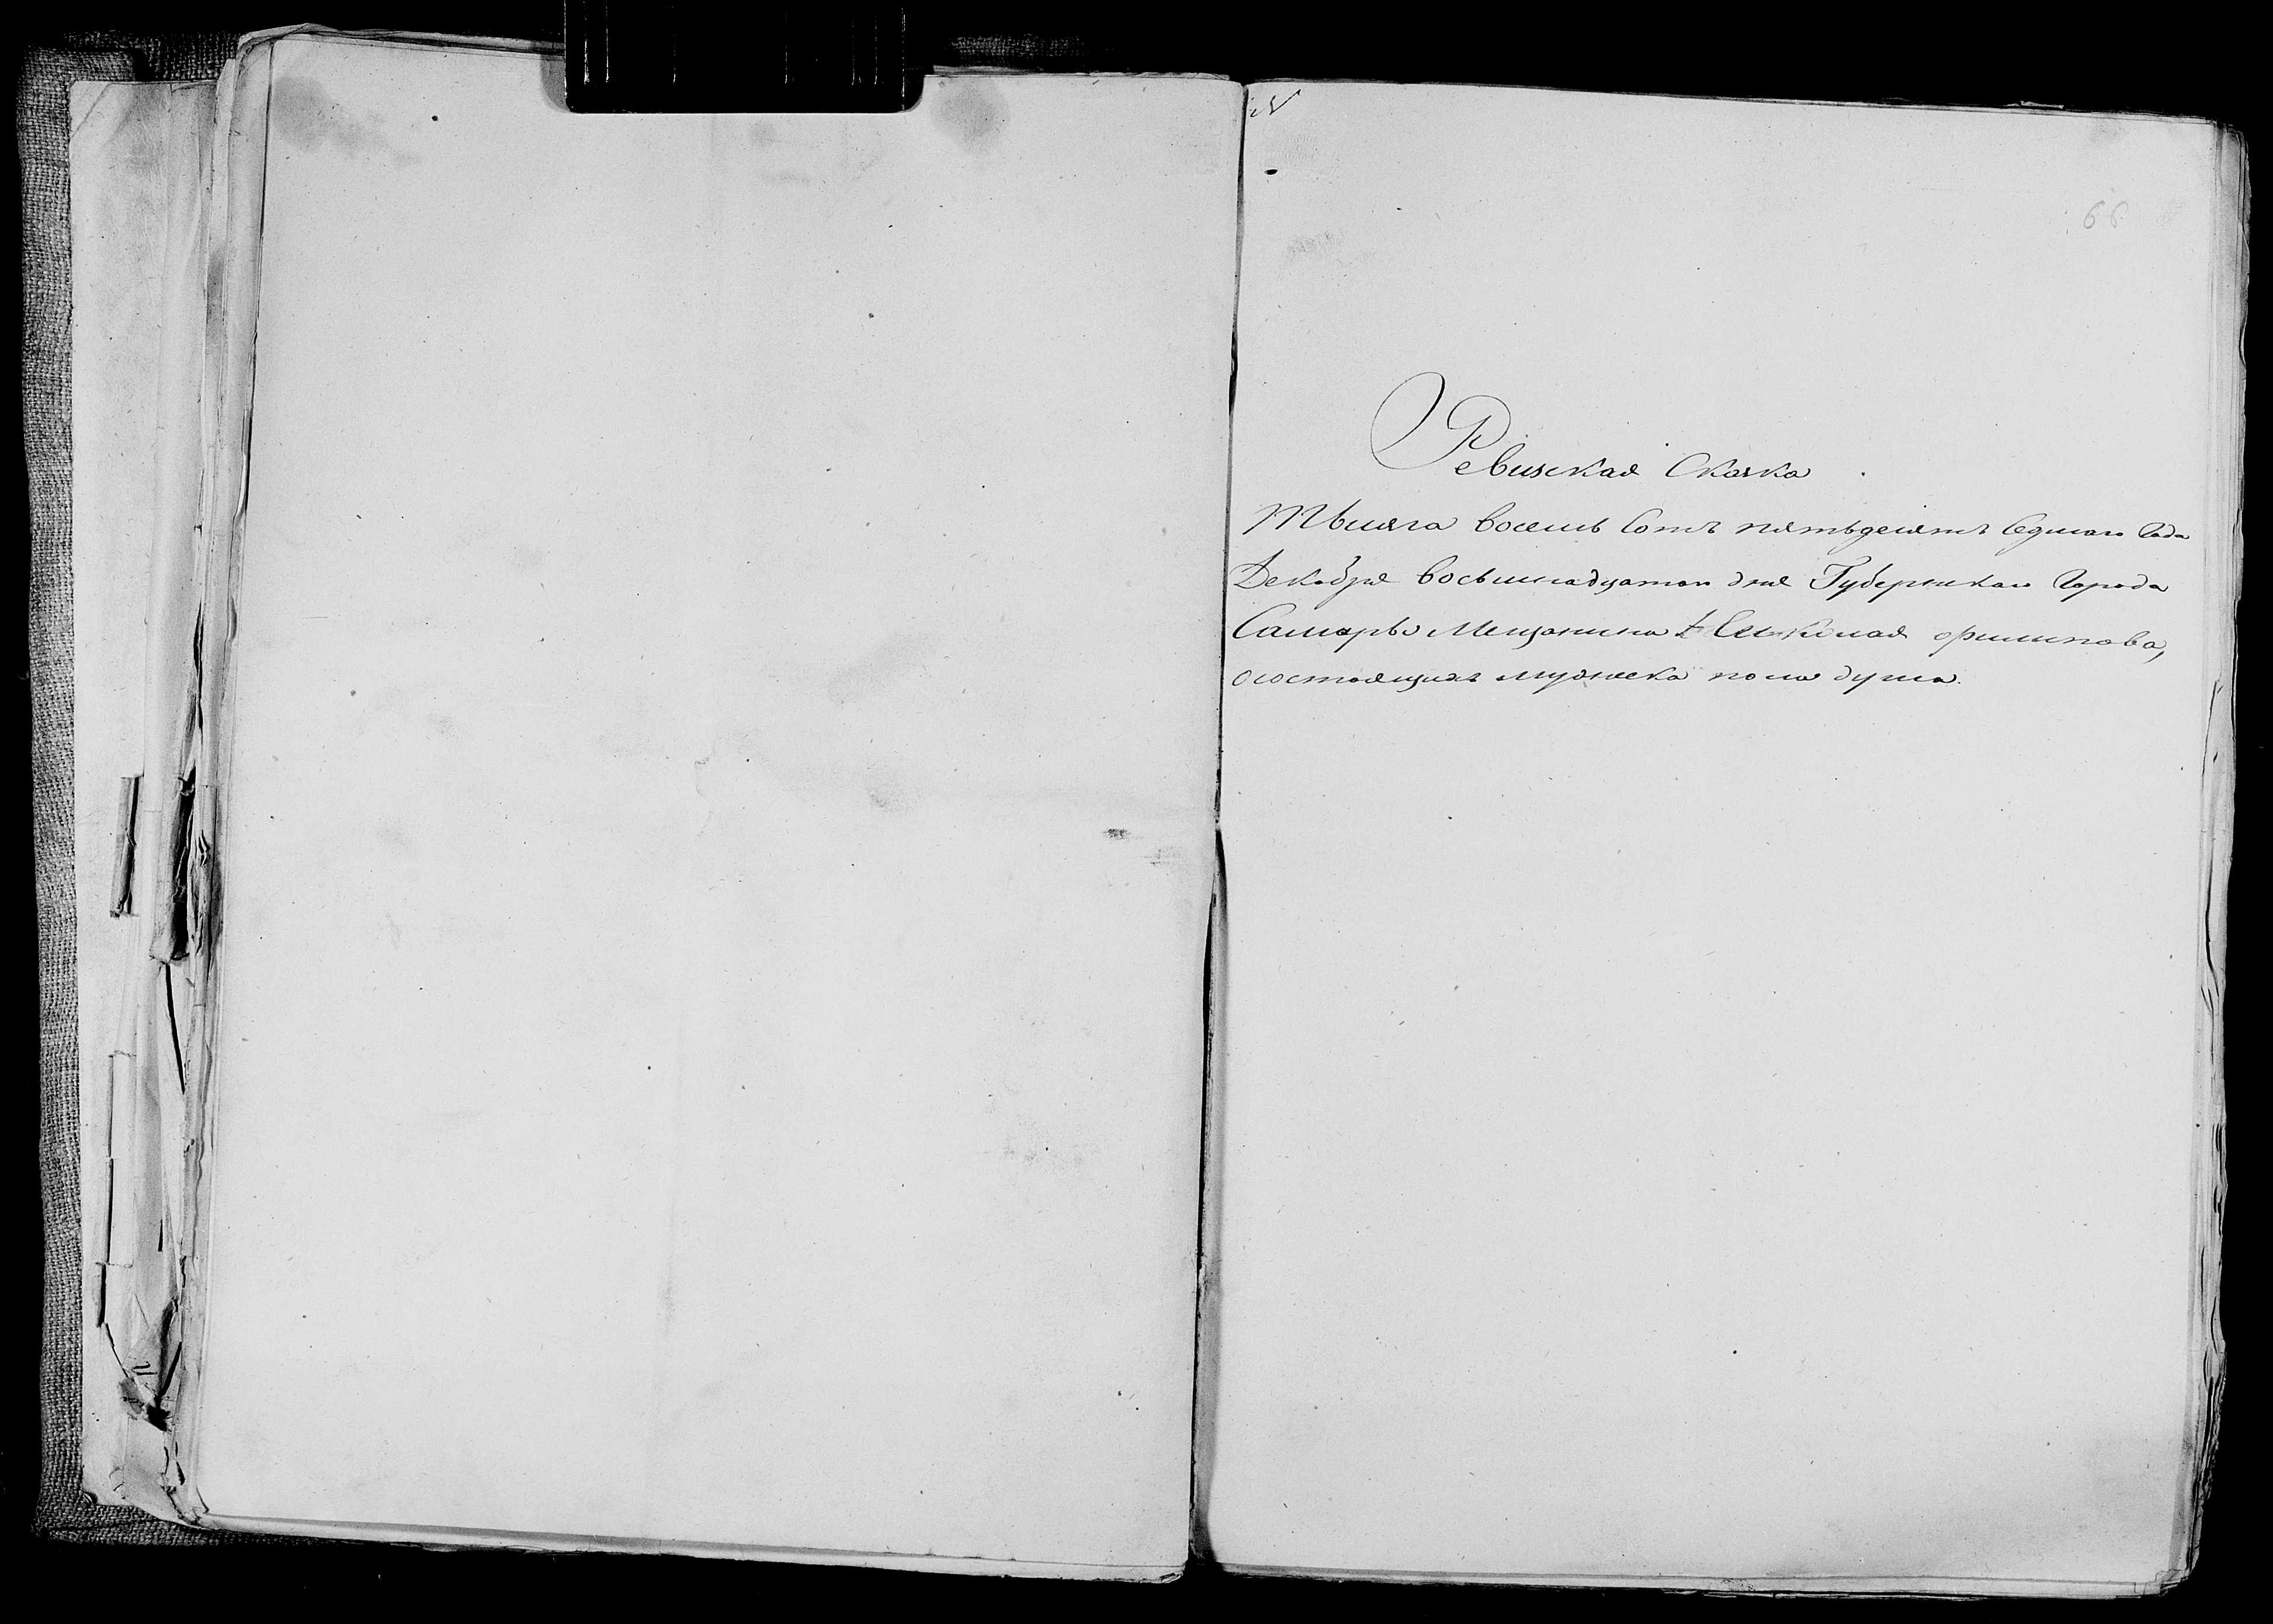 N
66
Ревизская Сказка
Тысяга восемь Сотъ пятьдесятъ Седмаго Года
Декабря восьмнадцатаго дня Губернскаго Города
Самары Мещанина Филипова,
о состоящихъ мужеска пола душа.